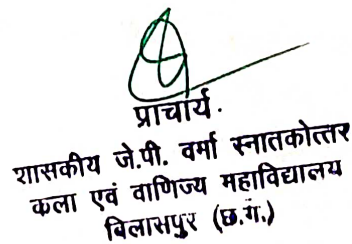 प्राचार्य.
शासकीय जे.पी. वर्मा स्नातकोत्तर
कला एवं वाणिज्य महाविद्यालय
बिलासपुर (छ.ग.)